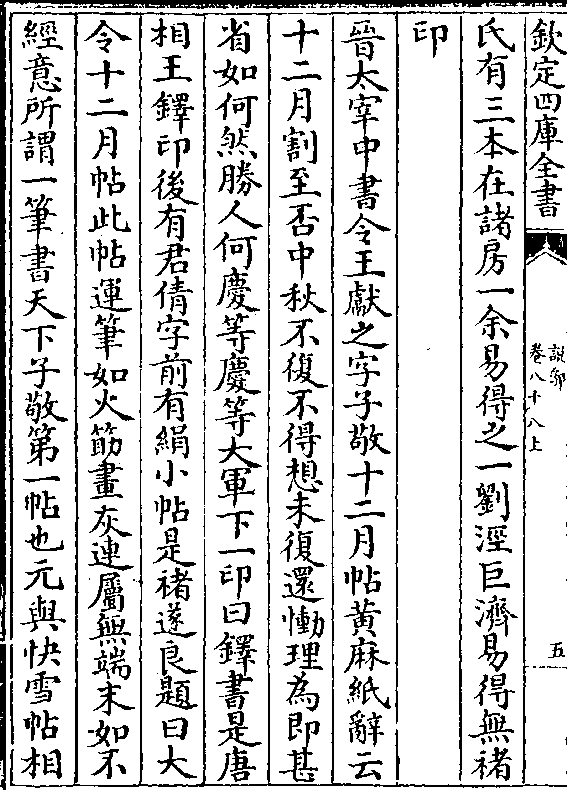 欽定四庫全書
說郛
卷八十八上
五
氏有三本在諸房一余易得之一劉涇巨濟易得無褚
印
晉太宰中書令王獻之字子敬十二月帖黃麻紙辭云
十二月割至否中秋不復不得想未復還慟理為即甚
省如何然勝人何慶等慶等大軍下一印曰鐸書是唐
相王鐸印後有君倩字前有絹小帖是褚遂良題曰大
令十二月帖此帖運筆如火筯畫灰連屬無端末如不
經意所謂一筆書天下子敬第一帖也元與快雪帖相